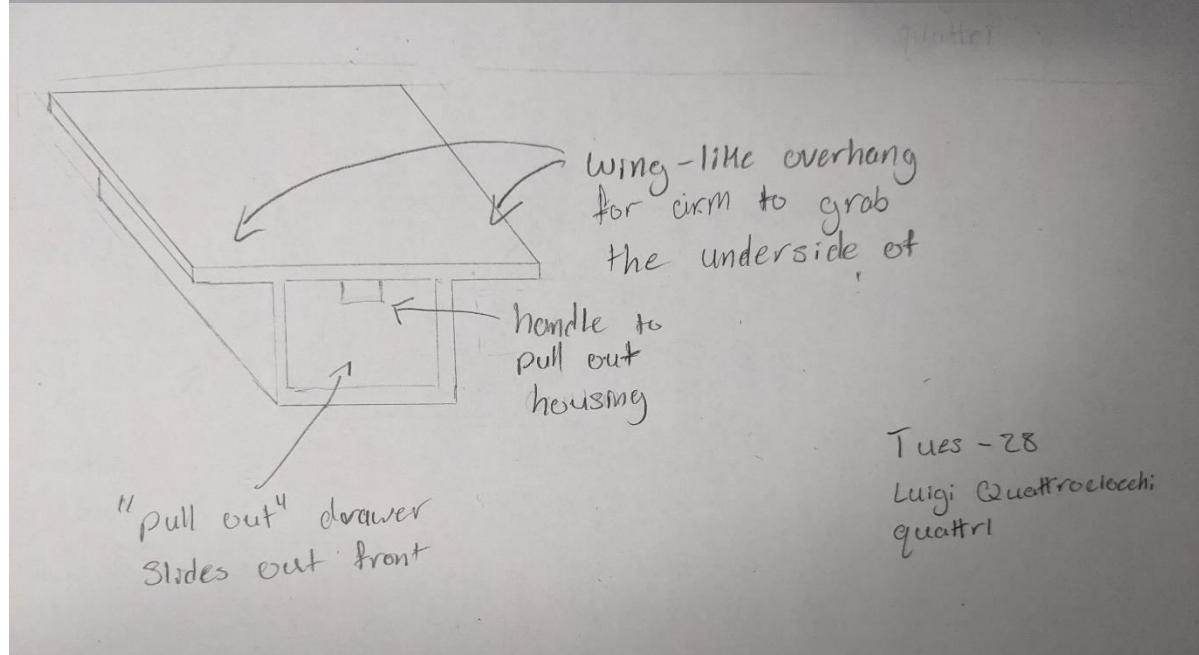 wing-like overhang
for arm to grab
the underside of
handle to
pull out
housing
"pull out" drawer
slides out front
Tues - 28
Luigi Quattrociocchi
quattrl